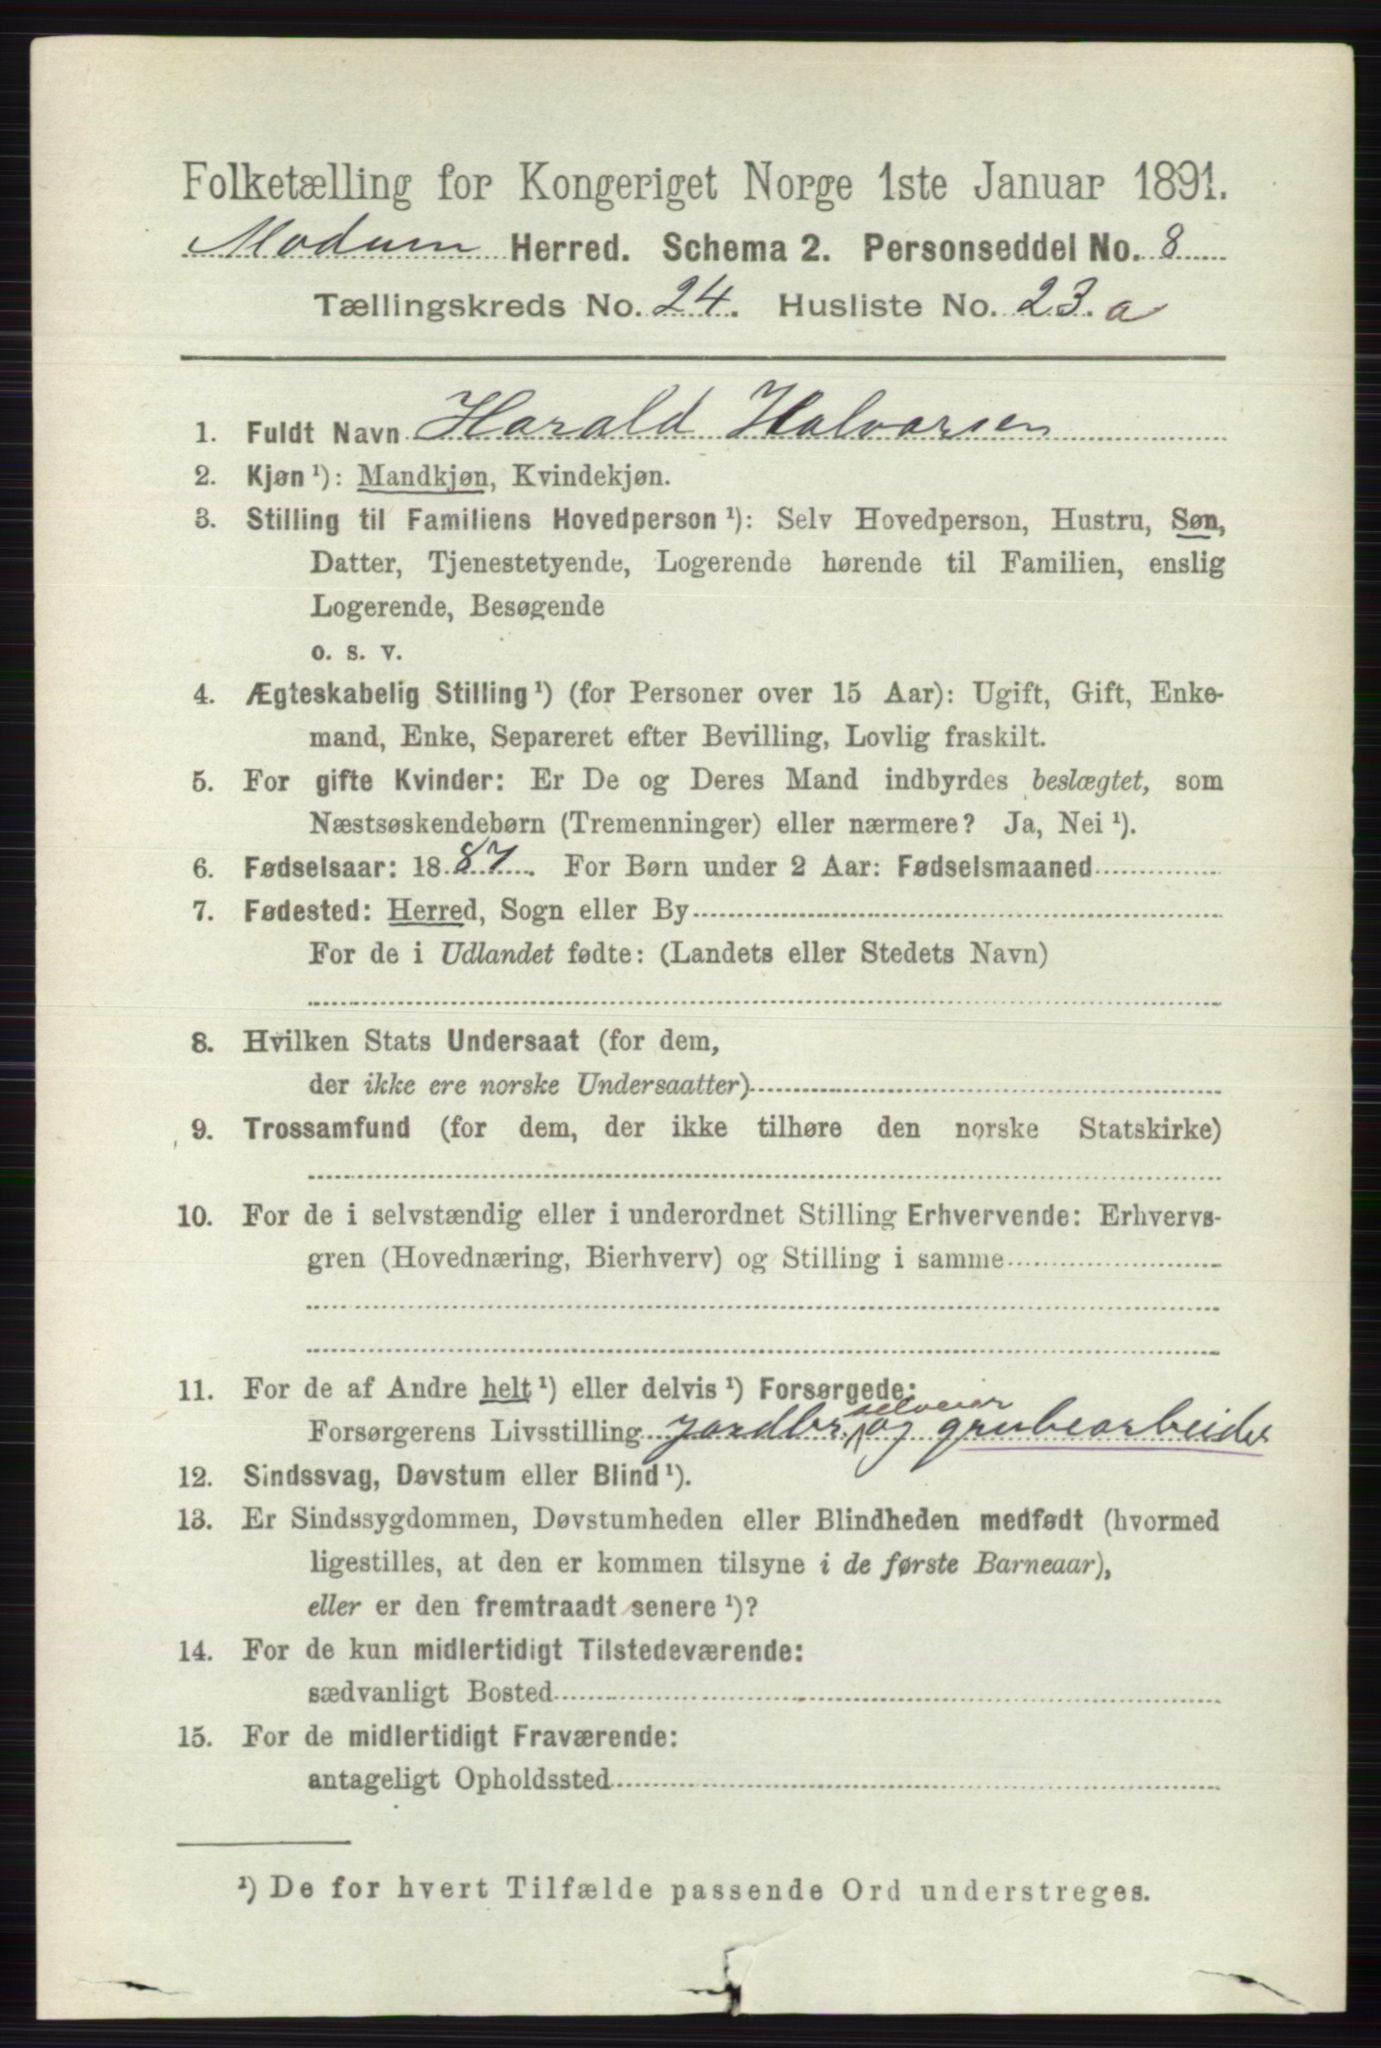 Folketælling for Kongeriget Norge 1ste Januar 1891.
Modum Herred. Schema 2. Personseddel No. 8
Tællingskreds No. 24. Husliste No. 23.a
1. Fuldt Navn Harald Halvorsen
2. Kjøn ¹): Mandkjøn, Kvindekjøn.
3. Stilling til Familiens Hovedperson ¹): Selv Hovedperson, Hustru, Søn,
Datter, Tjenestetyende, Logerende hørende til Familien, enslig
Logerende, Besøgende
o. s. v.
4. Ægteskabelig Stilling ¹) (for Personer over 15 Aar): Ugift, Gift, Enke-
mand, Enke, Separeret efter Bevilling, Lovlig fraskilt.
5. For gifte Kvinder: Er De og Deres Mand indbyrdes beslægtet, som
Næstsøskendebørn (Tremenninger) eller nærmere? Ja, Nei ¹).
6. Fødselsaar: 1887. For Børn under 2 Aar: Fødselsmaaned
7. Fødested: Herred, Sogn eller By
For de i Udlandet fødte: (Landets eller Stedets Navn)
8. Hvilken Stats Undersaat (for dem,
der ikke ere norske Undersaatter)
9. Trossamfund (for dem, der ikke tilhøre den norske Statskirke)
10. For de i selvstændig eller i underordnet Stilling Erhvervende: Erhvervs-
gren (Hovednæring, Bierhverv) og Stilling i samme
11. For de af Andre helt ¹) eller delvis ¹) Forsørgede:
selveier
Forsørgerens Livsstilling jordbr. og grubearbeider
12. Sindssvag, Døvstum eller Blind ¹).
13. Er Sindssygdommen, Døvstumheden eller Blindheden medfødt (hvormed
ligestilles, at den er kommen tilsyne i de første Barneaar),
eller er den fremtraadt senere ¹)?
14. For de kun midlertidigt Tilstedeværende:
sædvanligt Bosted
15. For de midlertidigt Fraværende:
antageligt Opholdssted
¹) De for hvert Tilfælde passende Ord understreges.